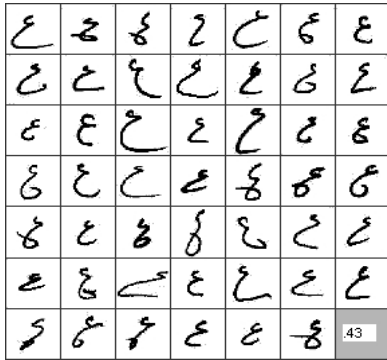 ع ع ع ع ع ع ع
ع ع ع ع ع ع ع
ع ع ع ع ع ع ع
ع ع ع ع ع ع ع
ع ع ع ع ع ع ع
ع ع ع ع ع ع ع
ع ع ع ع ع ع .43